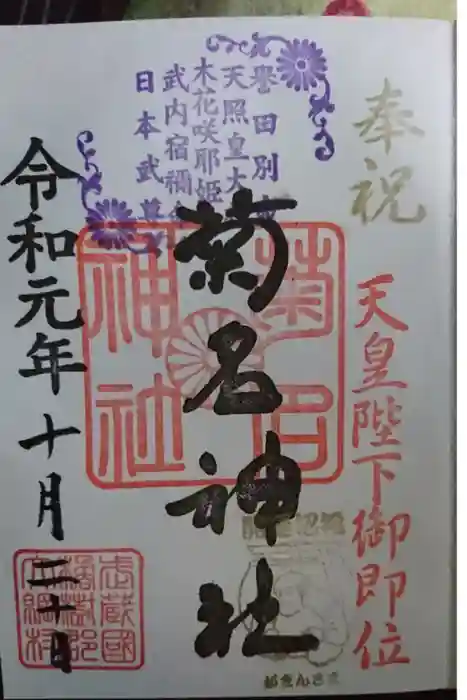 奉祝
天皇陛下御即位
誉田別
天照皇大
木花咲耶姫
武内宿禰
日本武尊
菊名神社
菊名
神社
令和元年十月二十日
武蔵國
橘樹郡